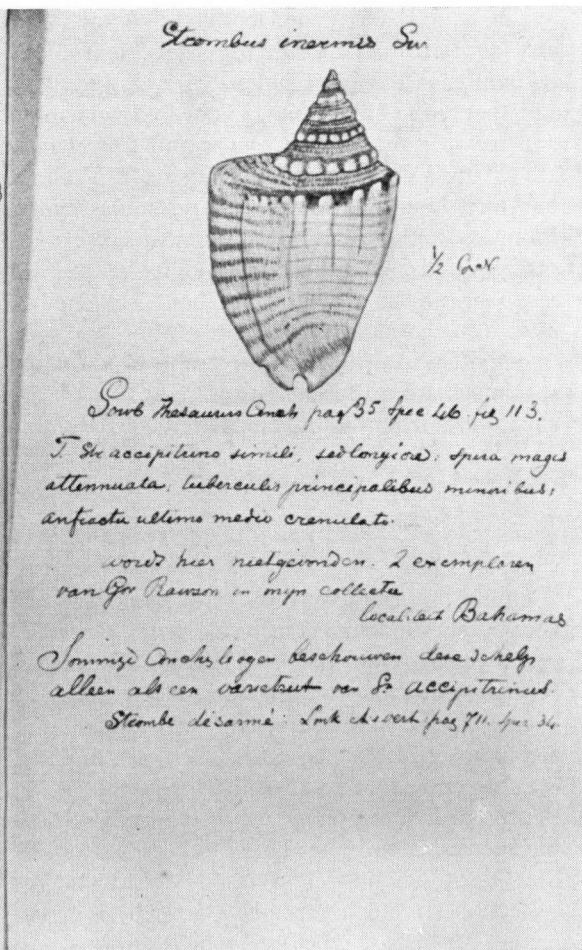 Strombus inermis Sw
1/2 Groot
Sowb Thesaurus Conch pag 35 Spec 46. fig 113.
T. Str accipitrino simili, sed longiore; spira magis
attennuata; tuberculis principalibus minoribus;
anfractu ultimo medio crenulato.
wordt hier niet gevonden. 2 exemplaren
van Gov Rawson in mijn collectie
localiteit Bahamas
Sommige Conchyliogen beschouwen deze schelp
alleen als een varieteit van Sr accipitrinus.
Strombe désarmé. pag 711. Spec 34